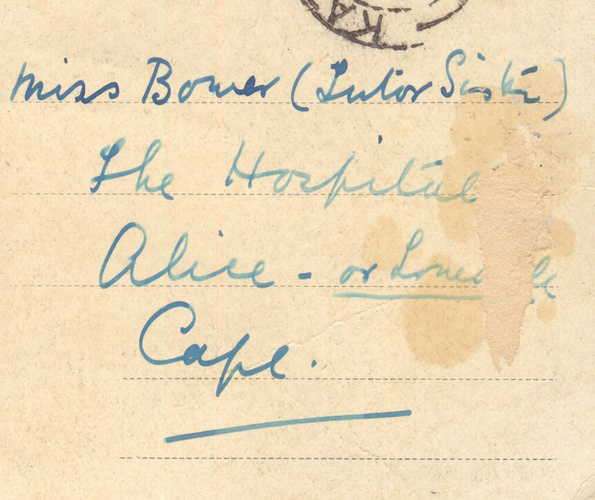 Miss Bower (Tutor Sister)
The Hospital
Alice - or
Cape.